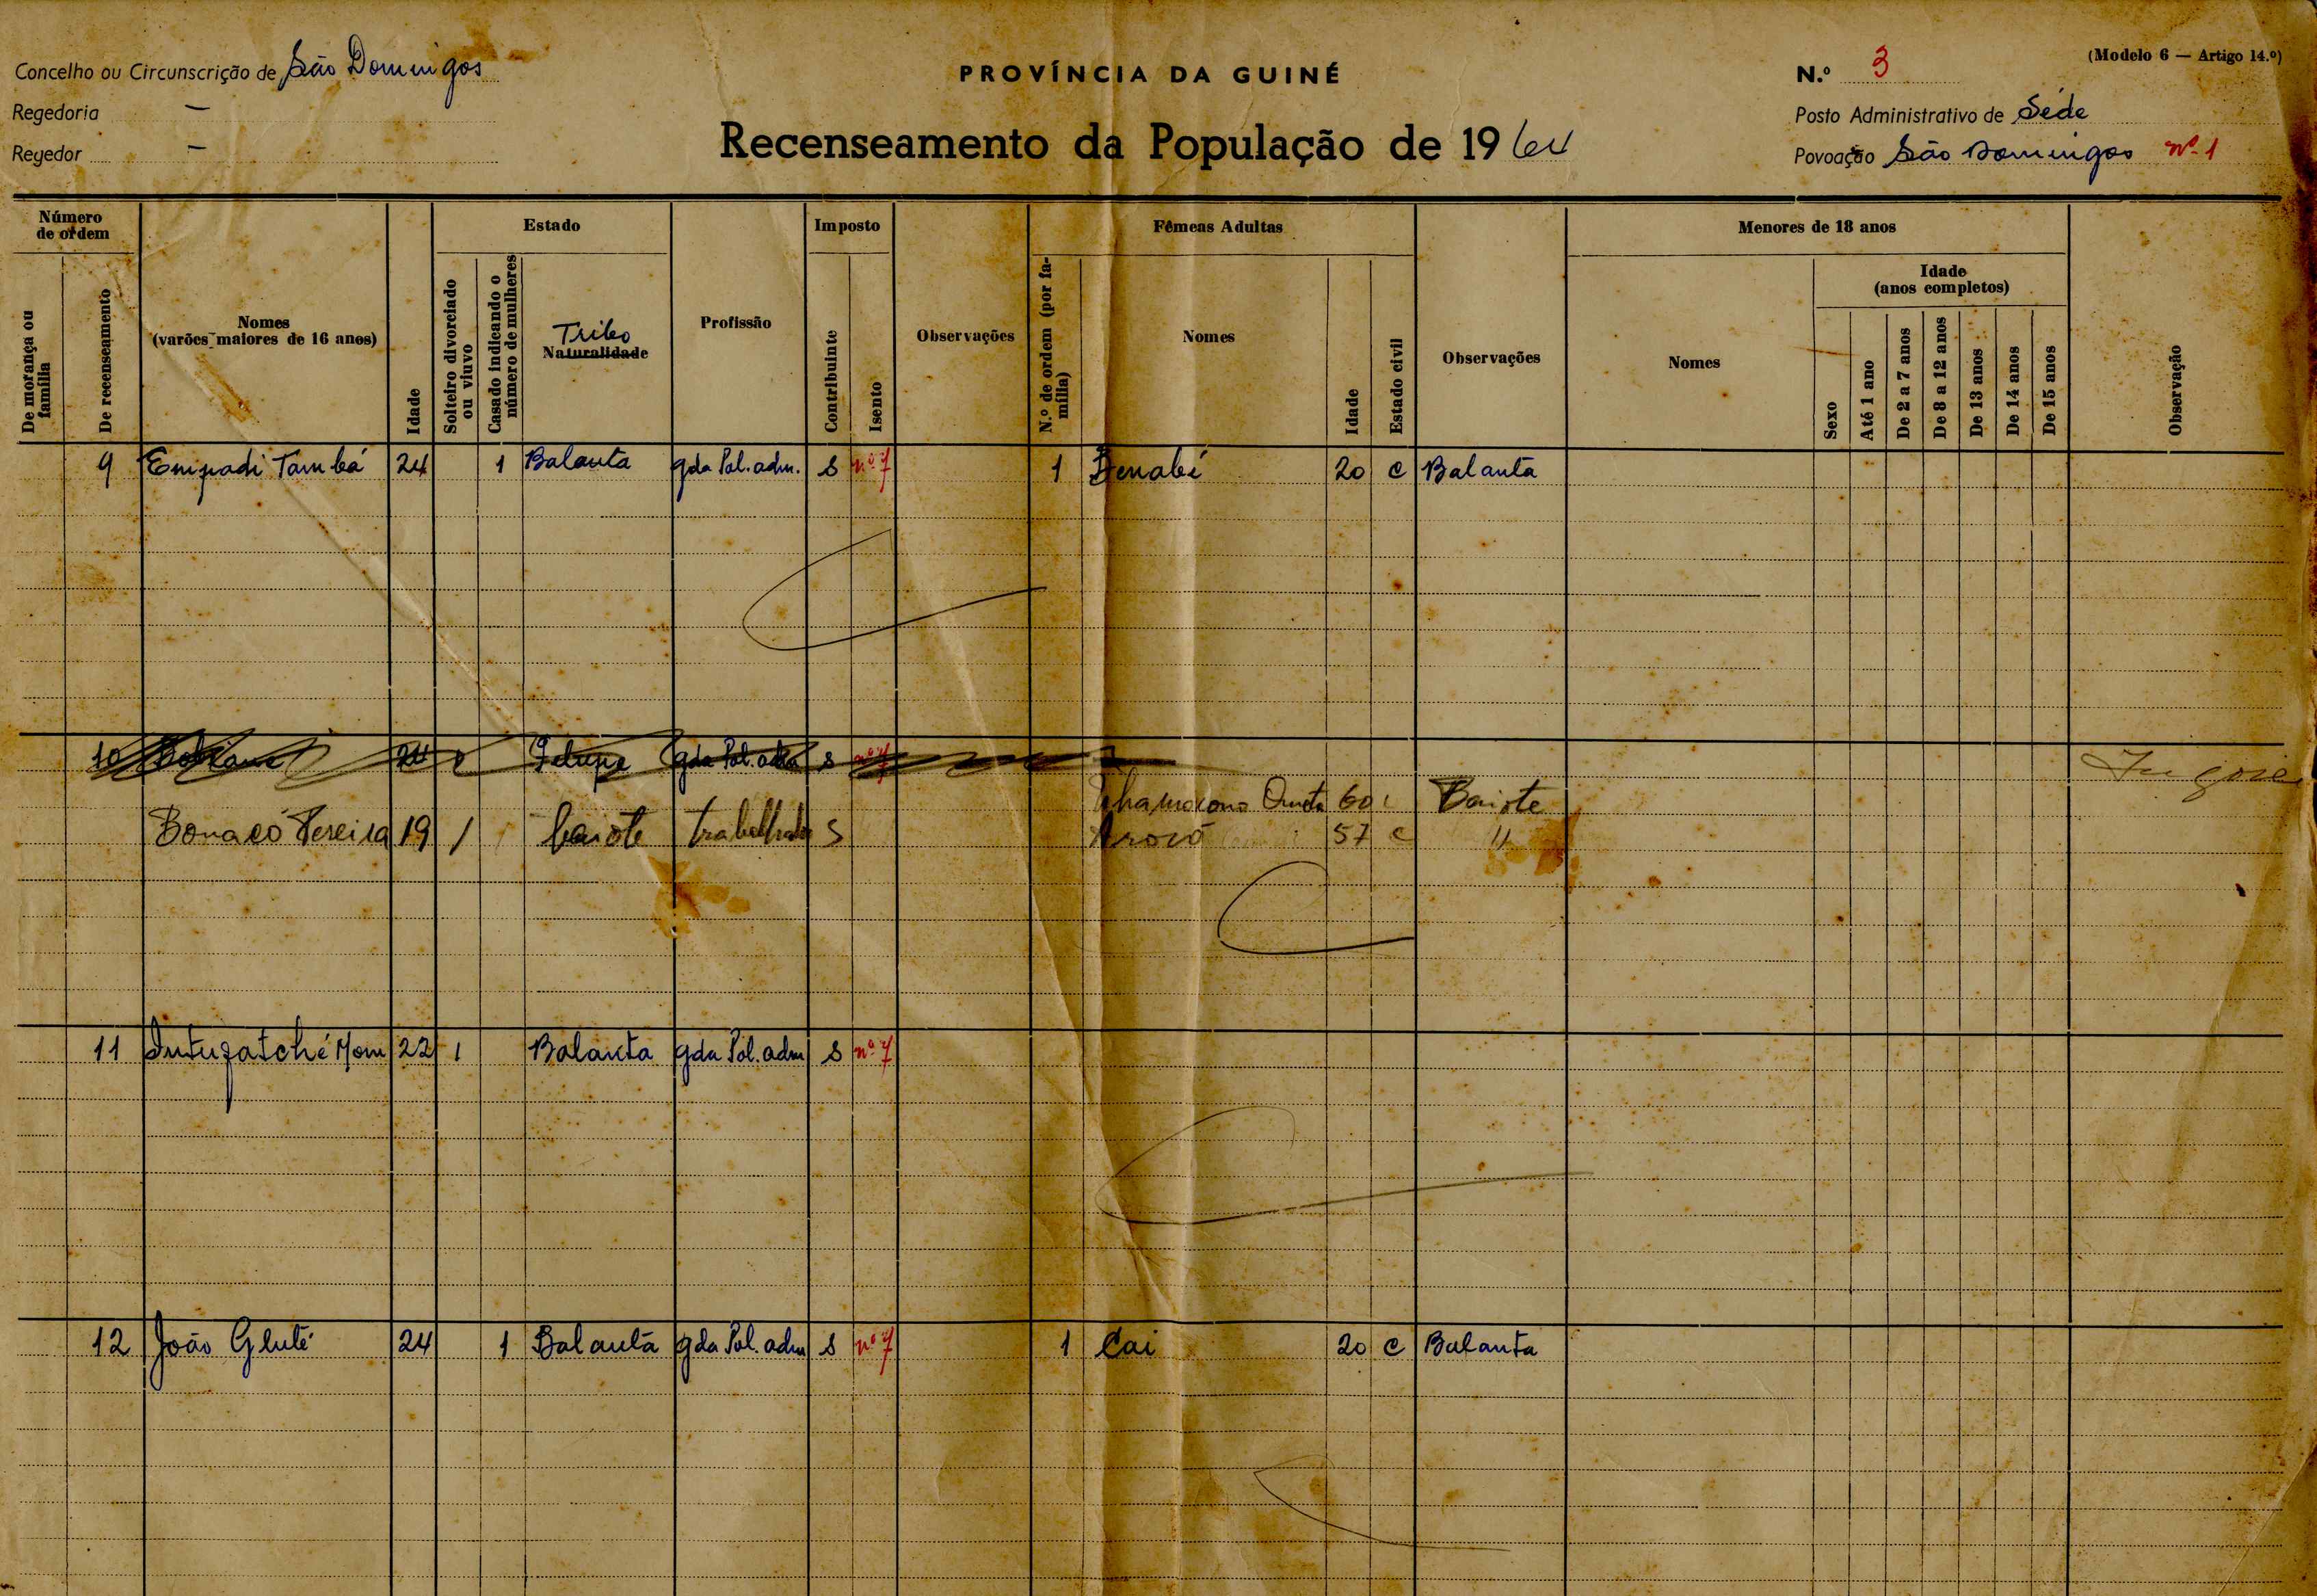 Concelho ou Circunscrição de São Domingos
Regedoria —
Regedor —
PROVÍNCIA DA GUINÉ
Recenseamento da População de 1964
(Modelo 6 — Artigo 14.º)
N.º 3
Posto Administrativo de Séde
Povoação São Domingos nº 1
Número de ordem
De morança ou família
De recenseamento
Nomes
(varões maiores de 16 anos)
Idade
Estado
Solteiro divorciado ou viuvo
Casado indicando o número de mulheres
Tribo
Naturalidade
Profissão
Imposto
Contribuinte
Isento
Observações
Fêmeas Adultas
N.º de ordem (por família)
Nomes
Idade
Estado civil
Observações
Menores de 18 anos
Nomes
Idade
(anos completos)
Sexo
Até 1 ano
De 2 a 7 anos
De 8 a 12 anos
De 13 anos
De 14 anos
De 15 anos
Observação
9 Empadi Tambá 24 1 Balanta gda Pol. adm. S nº 7 1 20 C Balanta
10 24 Felupe gda Pol. adm S nº 7
60 Baiote
Bonacó Pereira 19 1 baiote trabalhador S 57 C "
11 22 1 Balanta gda Pol. adm S nº 7
12 João Gluté 24 1 Balanta gda Pol. adm S nº 7 1 Cai 20 C Balanta